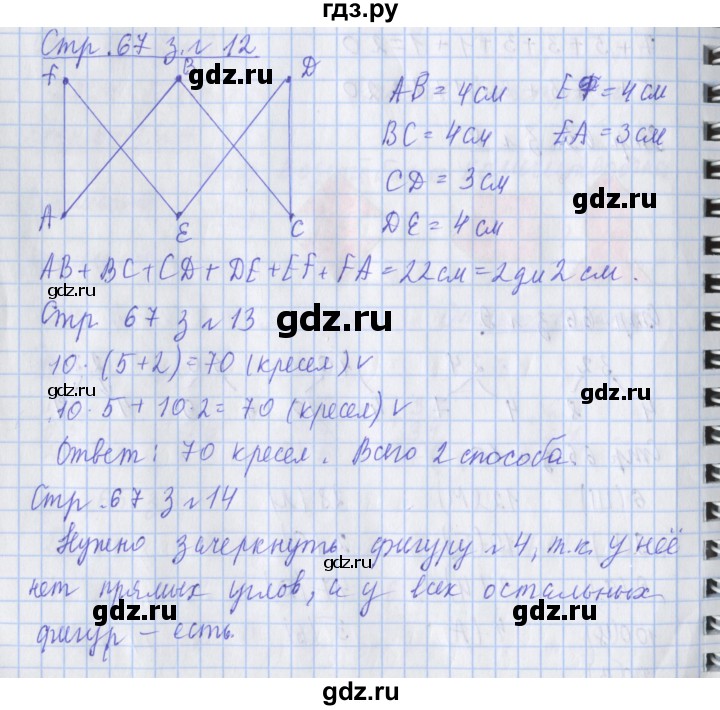 гдз.ру
Стр. 67 з. № 12
F B D
A E C
AB = 4 см EF = 4 см
BC = 4 см EA = 3 см
CD = 3 см
DE = 4 см
gdz.ru
gdz.ru
gdz.ru
gdz.ru
AB + BC + CD + DE + EF + FA = 22 см = 2 дм 2 см.
gdz.ru
gdz.ru
Стр 67 з № 13
10 · (5 + 2) = 70 (кресел) v
gdz.ru
gdz.ru
10 · 5 + 10 · 2 = 70 (кресел) v
Ответ: 70 кресел. Всего 2 способа.
gdz.ru
Стр. 67 з № 14
gdz.ru
Нужно зачеркнуть фигуру № 4, т.к. у неё
gdz.ru
нет прямых углов, а у всех остальных
gdz.ru
gdz.ru
фигур – есть.
gdz.ru